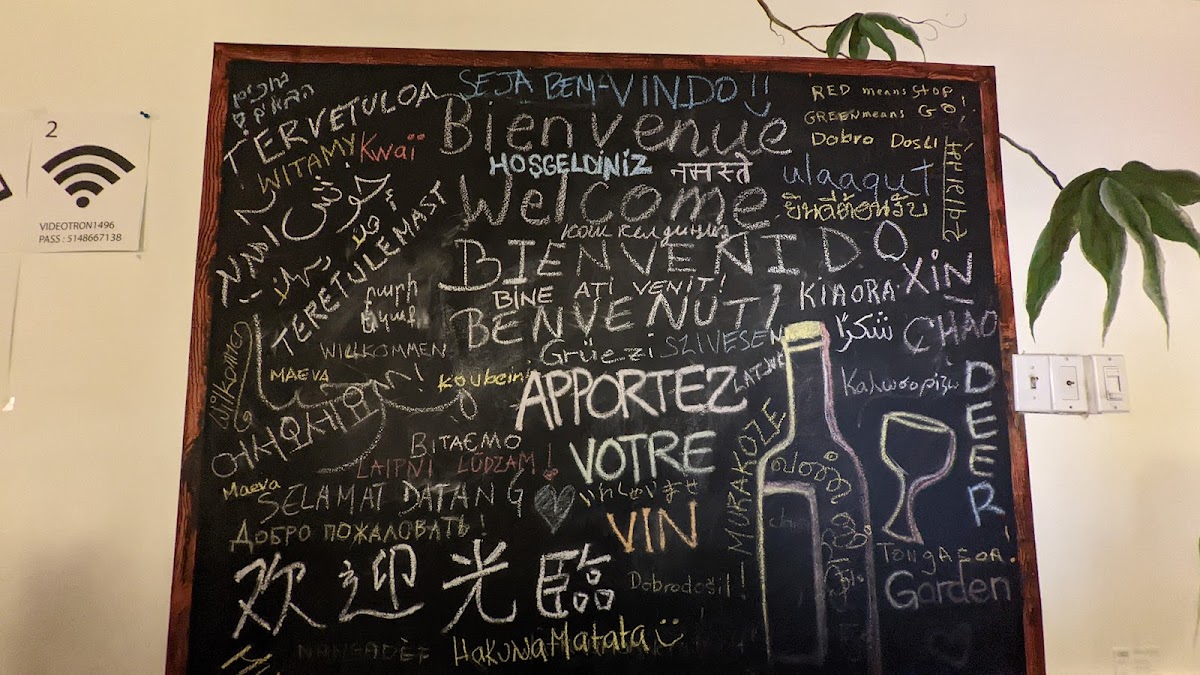 2
VIDEOTRON1496
PASS : 5148667138
ברוכים
הבאים
TERVETULOA
SEJA BEM-VINDO!!
RED means STOP
GREEN means GO!
WITAMY
Kwaï
Bienvenue
Dobro Došli
HOŞGELDİNİZ
नमस्ते
ulaaqut
Welcome
ยินดีต้อนรับ
خوش
TERETULEMAST
Кош келдиңиз
BIENVENIDO
XIN
CHÀO
բարի
BINE ATI VENIT!
KIAORA
BENVENUTI
شكرًا
WILLKOMMEN
Grüezi
SZIVESEN
MAEVA
APPORTEZ
Καλωσορίζω
DEER
Wilkommen
ВІТАЄМО
VOTRE
LAIPNI LŪDZAM!
MURAKOZE
Maeva
SELAMAT DATANG
いらしゃいませ
ДОБРО ПОЖАЛОВАТЬ!
VIN
欢迎光臨
Dobrodošil!
Garden
HakunaMatata